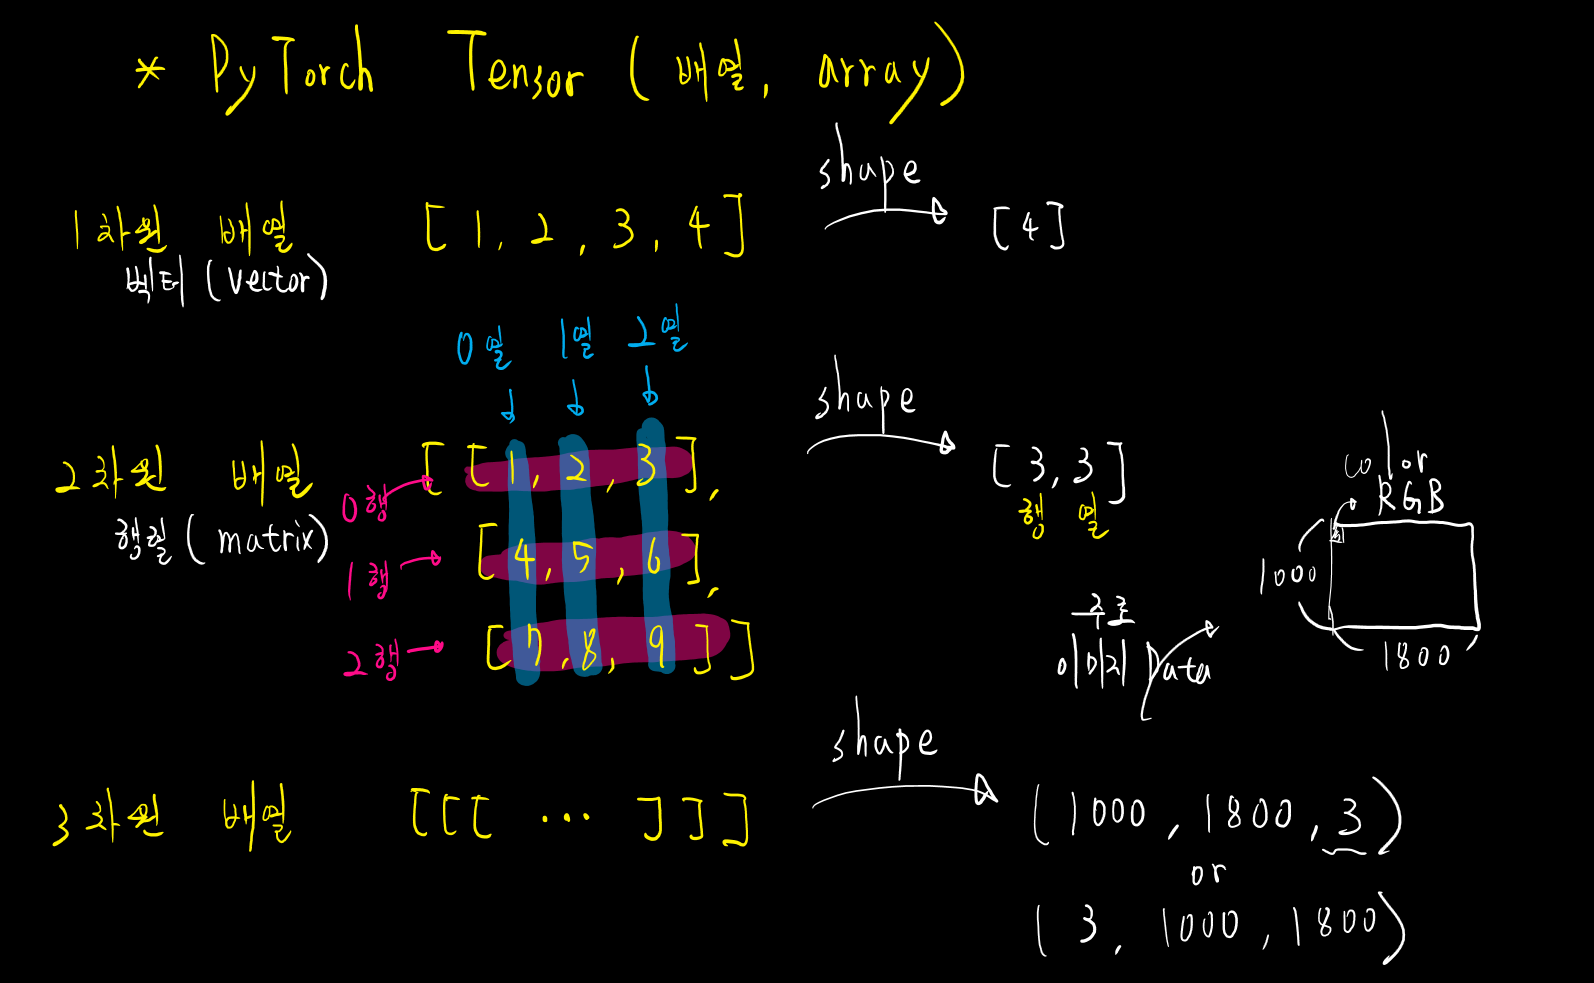 * PyTorch Tensor (배열, array)
shape
1차원 배열 [1, 2, 3, 4] [4]
벡터 (vector)
0열 1열 2열
shape
2차원 배열 [[1, 2, 3], [3, 3]
0행 행 열
행렬 (matrix) [4, 5, 6],
1행
[7, 8, 9]]
2행
color
RGB
1000
1800
주로
이미지 Data
shape
3차원 배열 [[[ ... ]]] (1000, 1800, 3)
or
(3, 1000, 1800)